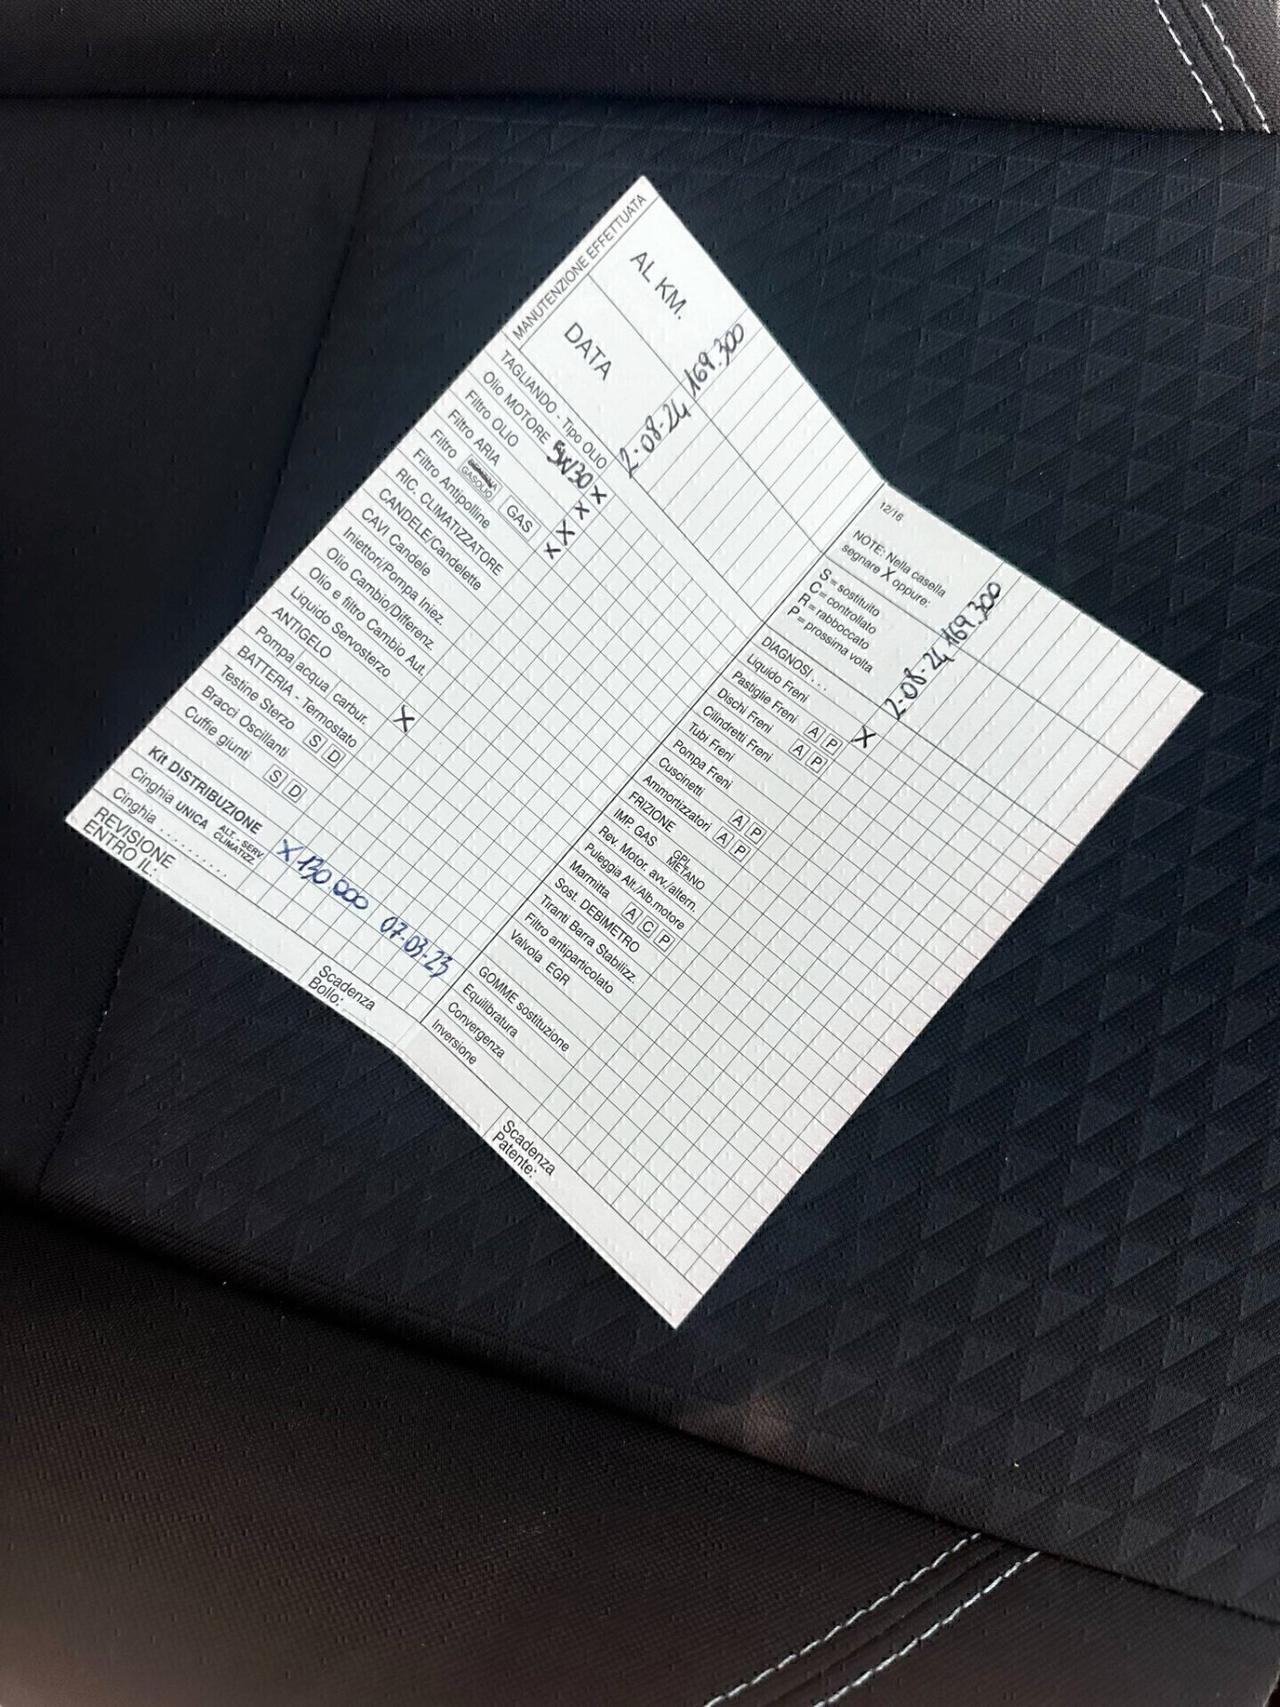 MANUTENZIONE EFFETTUATA
AL KM.
169.300
DATA
2-08-24
TAGLIANDO - Tipo OLIO
Olio MOTORE 5W30 X
Filtro OLIO X
Filtro ARIA X
Filtro GASOLIO GAS X
Filtro Antipolline X
RIC. CLIMATIZZATORE
CANDELE/Candelette
CAVI Candele
Iniettori/Pompa Iniez.
Olio Cambio/Differenz.
Olio e filtro Cambio Aut.
Liquido Servosterzo
ANTIGELO
Pompa acqua carbur.
BATTERIA - Termostato X
Testine Sterzo S D
Bracci Oscillanti
Cuffie giunti S D
Kit DISTRIBUZIONE X 130000 07-03-23
Cinghia UNICA ALT. - SERV. CLIMATIZZ.
Cinghia ..........
REVISIONE
ENTRO IL:
Scadenza
Bollo:
12/16
NOTE: Nella casella
segnare X oppure:
S = sostituito
C = controllato
R = rabboccato
P = prossima volta
169.300
2-08-24
DIAGNOSI . . . X
Liquido Freni
Pastiglie Freni A P
Dischi Freni A P
Cilindretti Freni
Tubi Freni
Pompa Freni
Cuscinetti A P
Ammortizzatori A P
FRIZIONE
IMP. GAS GPL METANO
Rev. Motor. avv./altern.
Puleggia Alt./Alb.motore
Marmitta A C P
Sost. DEBIMETRO
Tiranti Barra Stabilizz.
Filtro antiparticolato
Valvola EGR
GOMME sostituzione
Equilibratura
Convergenza
Inversione
Scadenza
Patente: